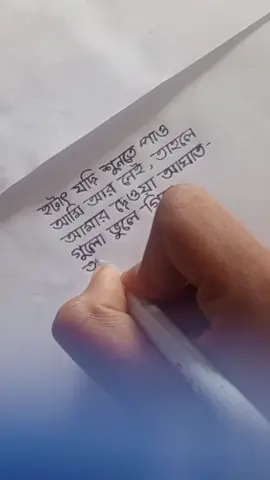 হটাৎ যদি শুনতে পাও
আমি আর নেই, তাহলে
আমার দেওয়া আঘাত-
গুলো ভুলে